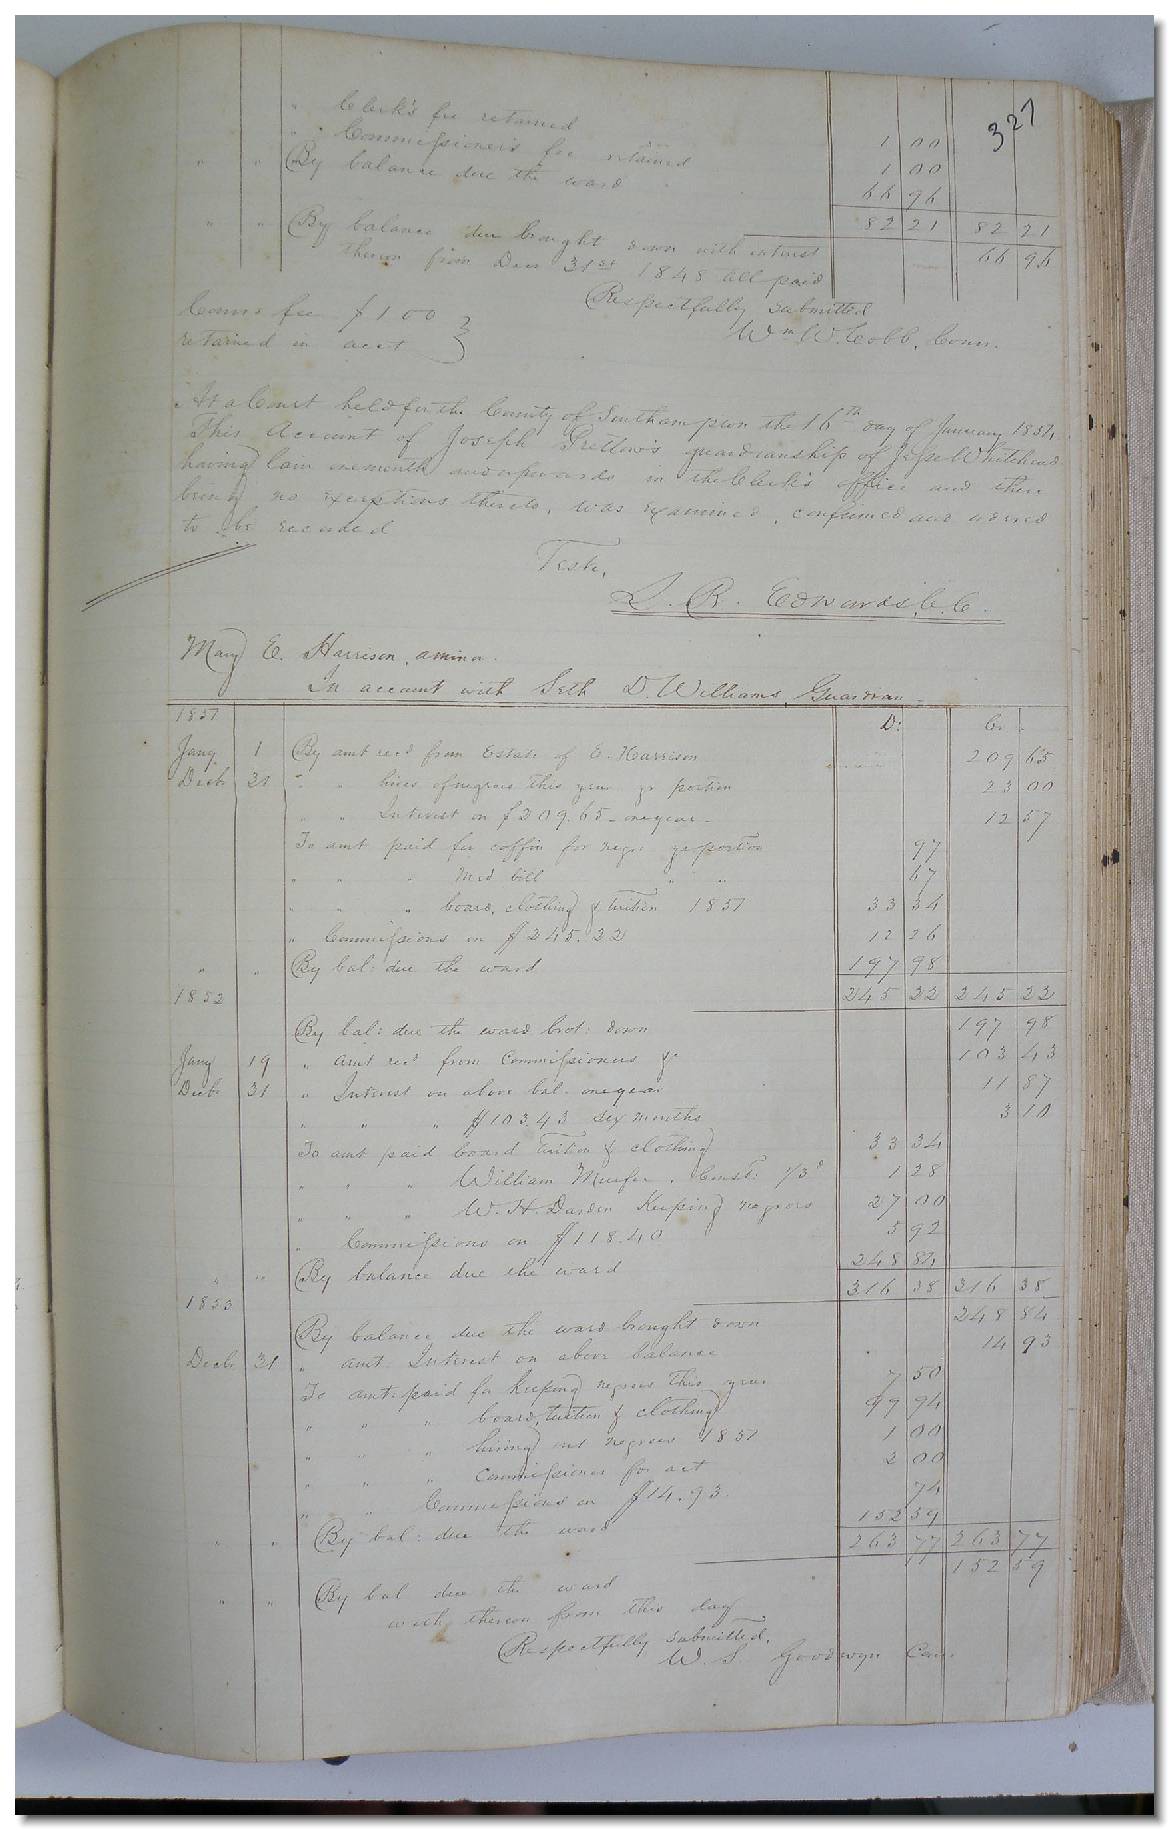 327
" Clerk's fee retained 1 00
" Commissioner's fee retained 1 00
" " By balance due the ward 66 96
82 21 82 21
" " By balance due brought down with interest 66 96
thereon from Decr 31st 1848 till paid
Respectfully submitted
Wm W. Cobb, Comr.
Comrs fee $1 00 }
retained in acct }
At a Court held for the County of Southampton the 16th day of January 1854,
This Account of Joseph Pretlow's guardianship of Jesse Whitehead
having lain one month and upwards in the Clerk's office and there
being no exceptions thereto, was examined, confirmed and ordered
to be recorded
Teste,
L. R. Edwards, C. C.
Mary E. Harrison, a minor.
In account with Seth D. Williams, Guardian
1851 Dr. Cr.
Jany 1 By amt recd from Estate of E. Harrison 209 65
Decbr 31 " " hires of negroes this year pr portion 23 00
" " Interest on $209.65 one year 12 57
To amt paid for coffin for negro pr portion 97
" " " Med bill " " 67
" " " board, clothing & tuition 1851 33 34
" Commissions on $245.22 12 26
" " By bal: due the ward 197 98
245 22 245 22
1852
By bal: due the ward brot: down 197 98
Jany 19 " amt recd from Commissioners &c 103 43
Decbr 31 " Interest on above bal. one year 11 87
" " " $103.43 six months 3 10
To amt paid board tuition & clothing 33 34
" " " William 1/3d 1 28
" " " W. H. Darden Keeping negroes 27 00
" Commissions on $118.40 5 92
" " By balance due the ward 248 84
316 38 316 38
1853
By balance due the ward brought down 248 84
Decbr 31 " amt: Interest on above balance 14 93
To amt: paid for keeping negroes this year 7 50
" " " board, tuition & clothing 99 94
" " " hiring out negroes 1851 1 00
" " " Commissioner for act 2 00
" " Commissions on $14.93. 74
" " By bal: due the ward 152 59
263 77 263 77
" " By bal due the ward 152 59
with thereon from this day
Respectfully submitted,
W. S. Goodwyn Com